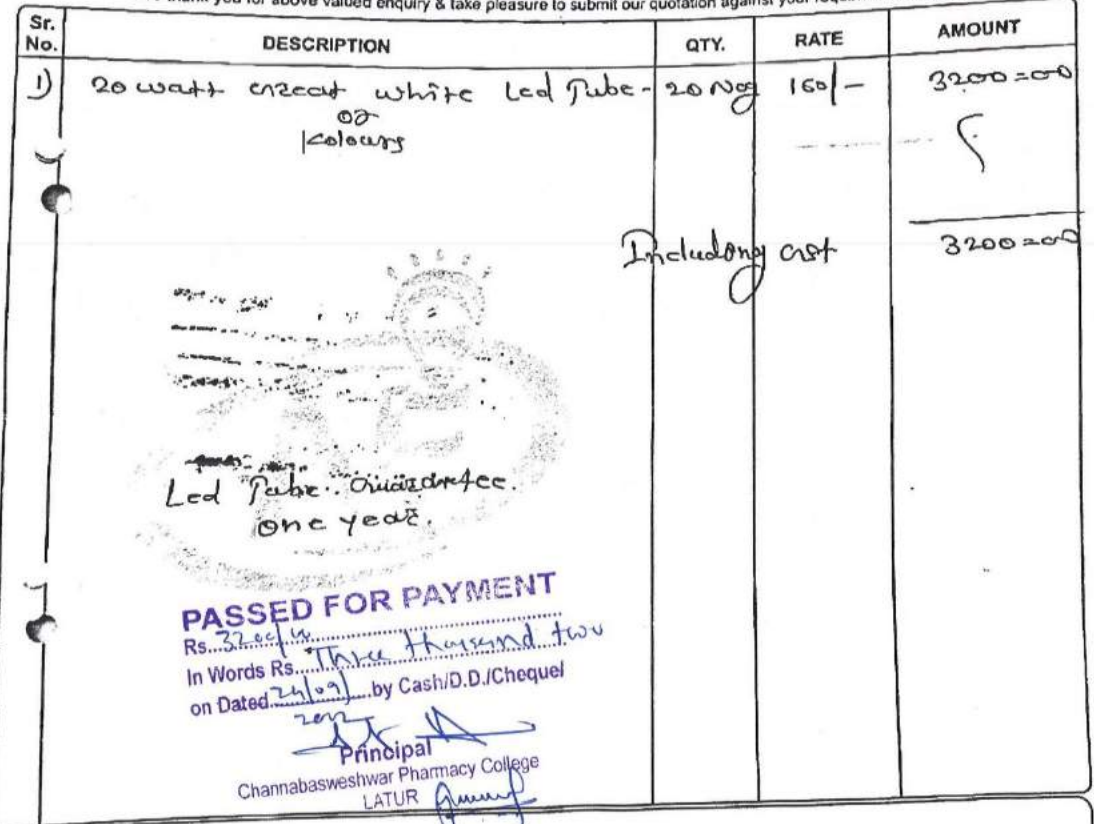 thank you for above valued enquiry & take pleasure to submit our quotation against your
Sr. No. DESCRIPTION QTY. RATE AMOUNT
1) 20 watt white Led Tube - 20 Nos 160/- 3200=00
or
Kolours
Including 3200=00
Led Tube
one year.
PASSED FOR PAYMENT
Rs. 3200/-
In Words Rs. Three thousand two
on Dated 24/09/ by Cash/D.D./Chequel
2022
Principal
Channabasweshwar Pharmacy College
LATUR